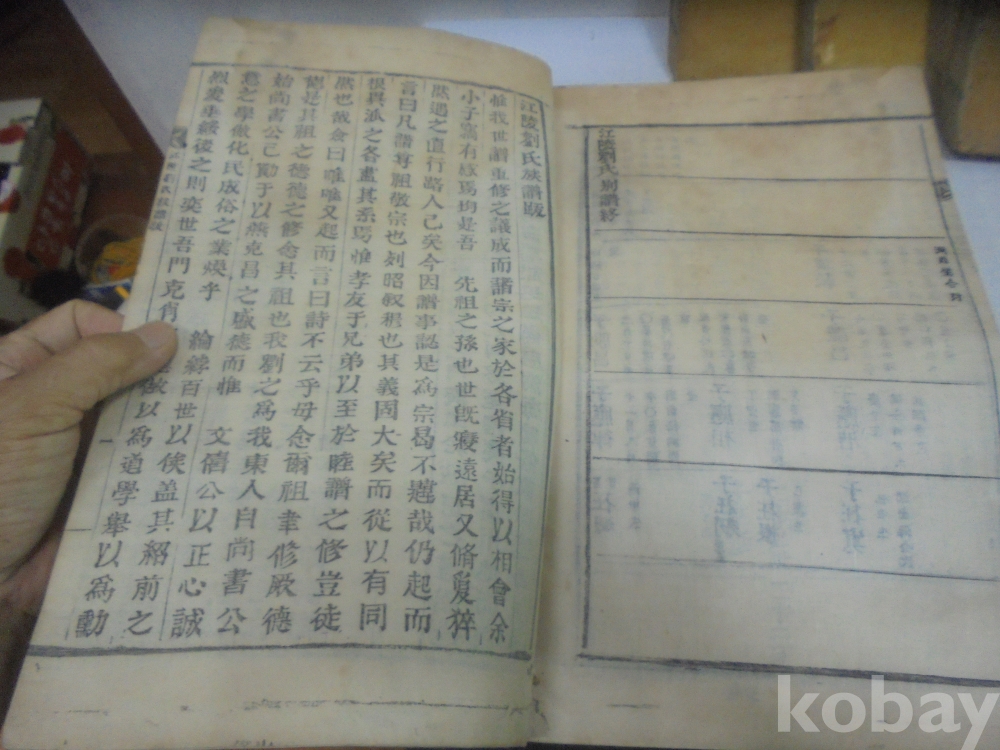 江陵劉氏別譜終
江陵劉氏族譜跋
惟我世譜重修之議成而諸宗之家於各省者始得以相會余
小子竊有感焉均是吾 先祖之孫也世旣寢遠居又脩夐猝
然遇之直行路人已矣今因譜事認是爲宗曷不韙哉仍起而
言曰凡譜尊祖敬宗也別昭叙穆也其義固大矣而從以有同
根異派之各盡其系焉惟孝友于兄弟以至於睦譜之修豈徒
然也哉僉曰唯唯又起而言曰詩不云乎毋念爾祖聿修厥德
德是其祖之德德之修念其祖也我劉之爲我東人自尚書公
始尚書公已勤于以燕克昌之盛德而惟 文僖公以正心誠
意之學做化民成俗之業煥乎 綸綍百世以俟盖其紹前之
烈爰垂綏後之則奕世吾門克肖 做以爲道學擧以爲勳
江陵劉氏族譜跋
一
kobay